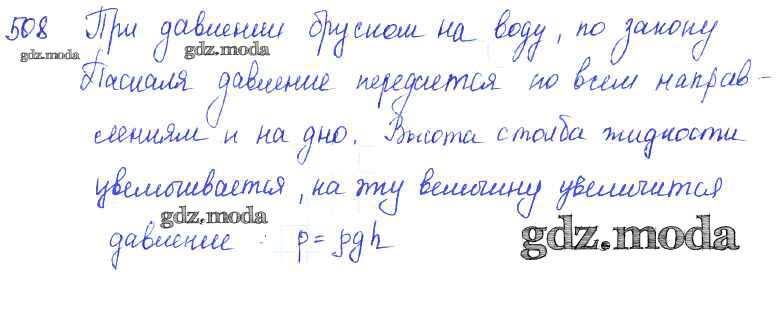 508 При давлении бруском на воду, по закону
gdz.moda gdz.moda gdz.moda
Паскаля давление передается по всем направ-
лениям и на дно. Высота столба жидкости
увеличивается, на эту величину увеличится
gdz.moda
давление : p = ρgh
gdz.moda